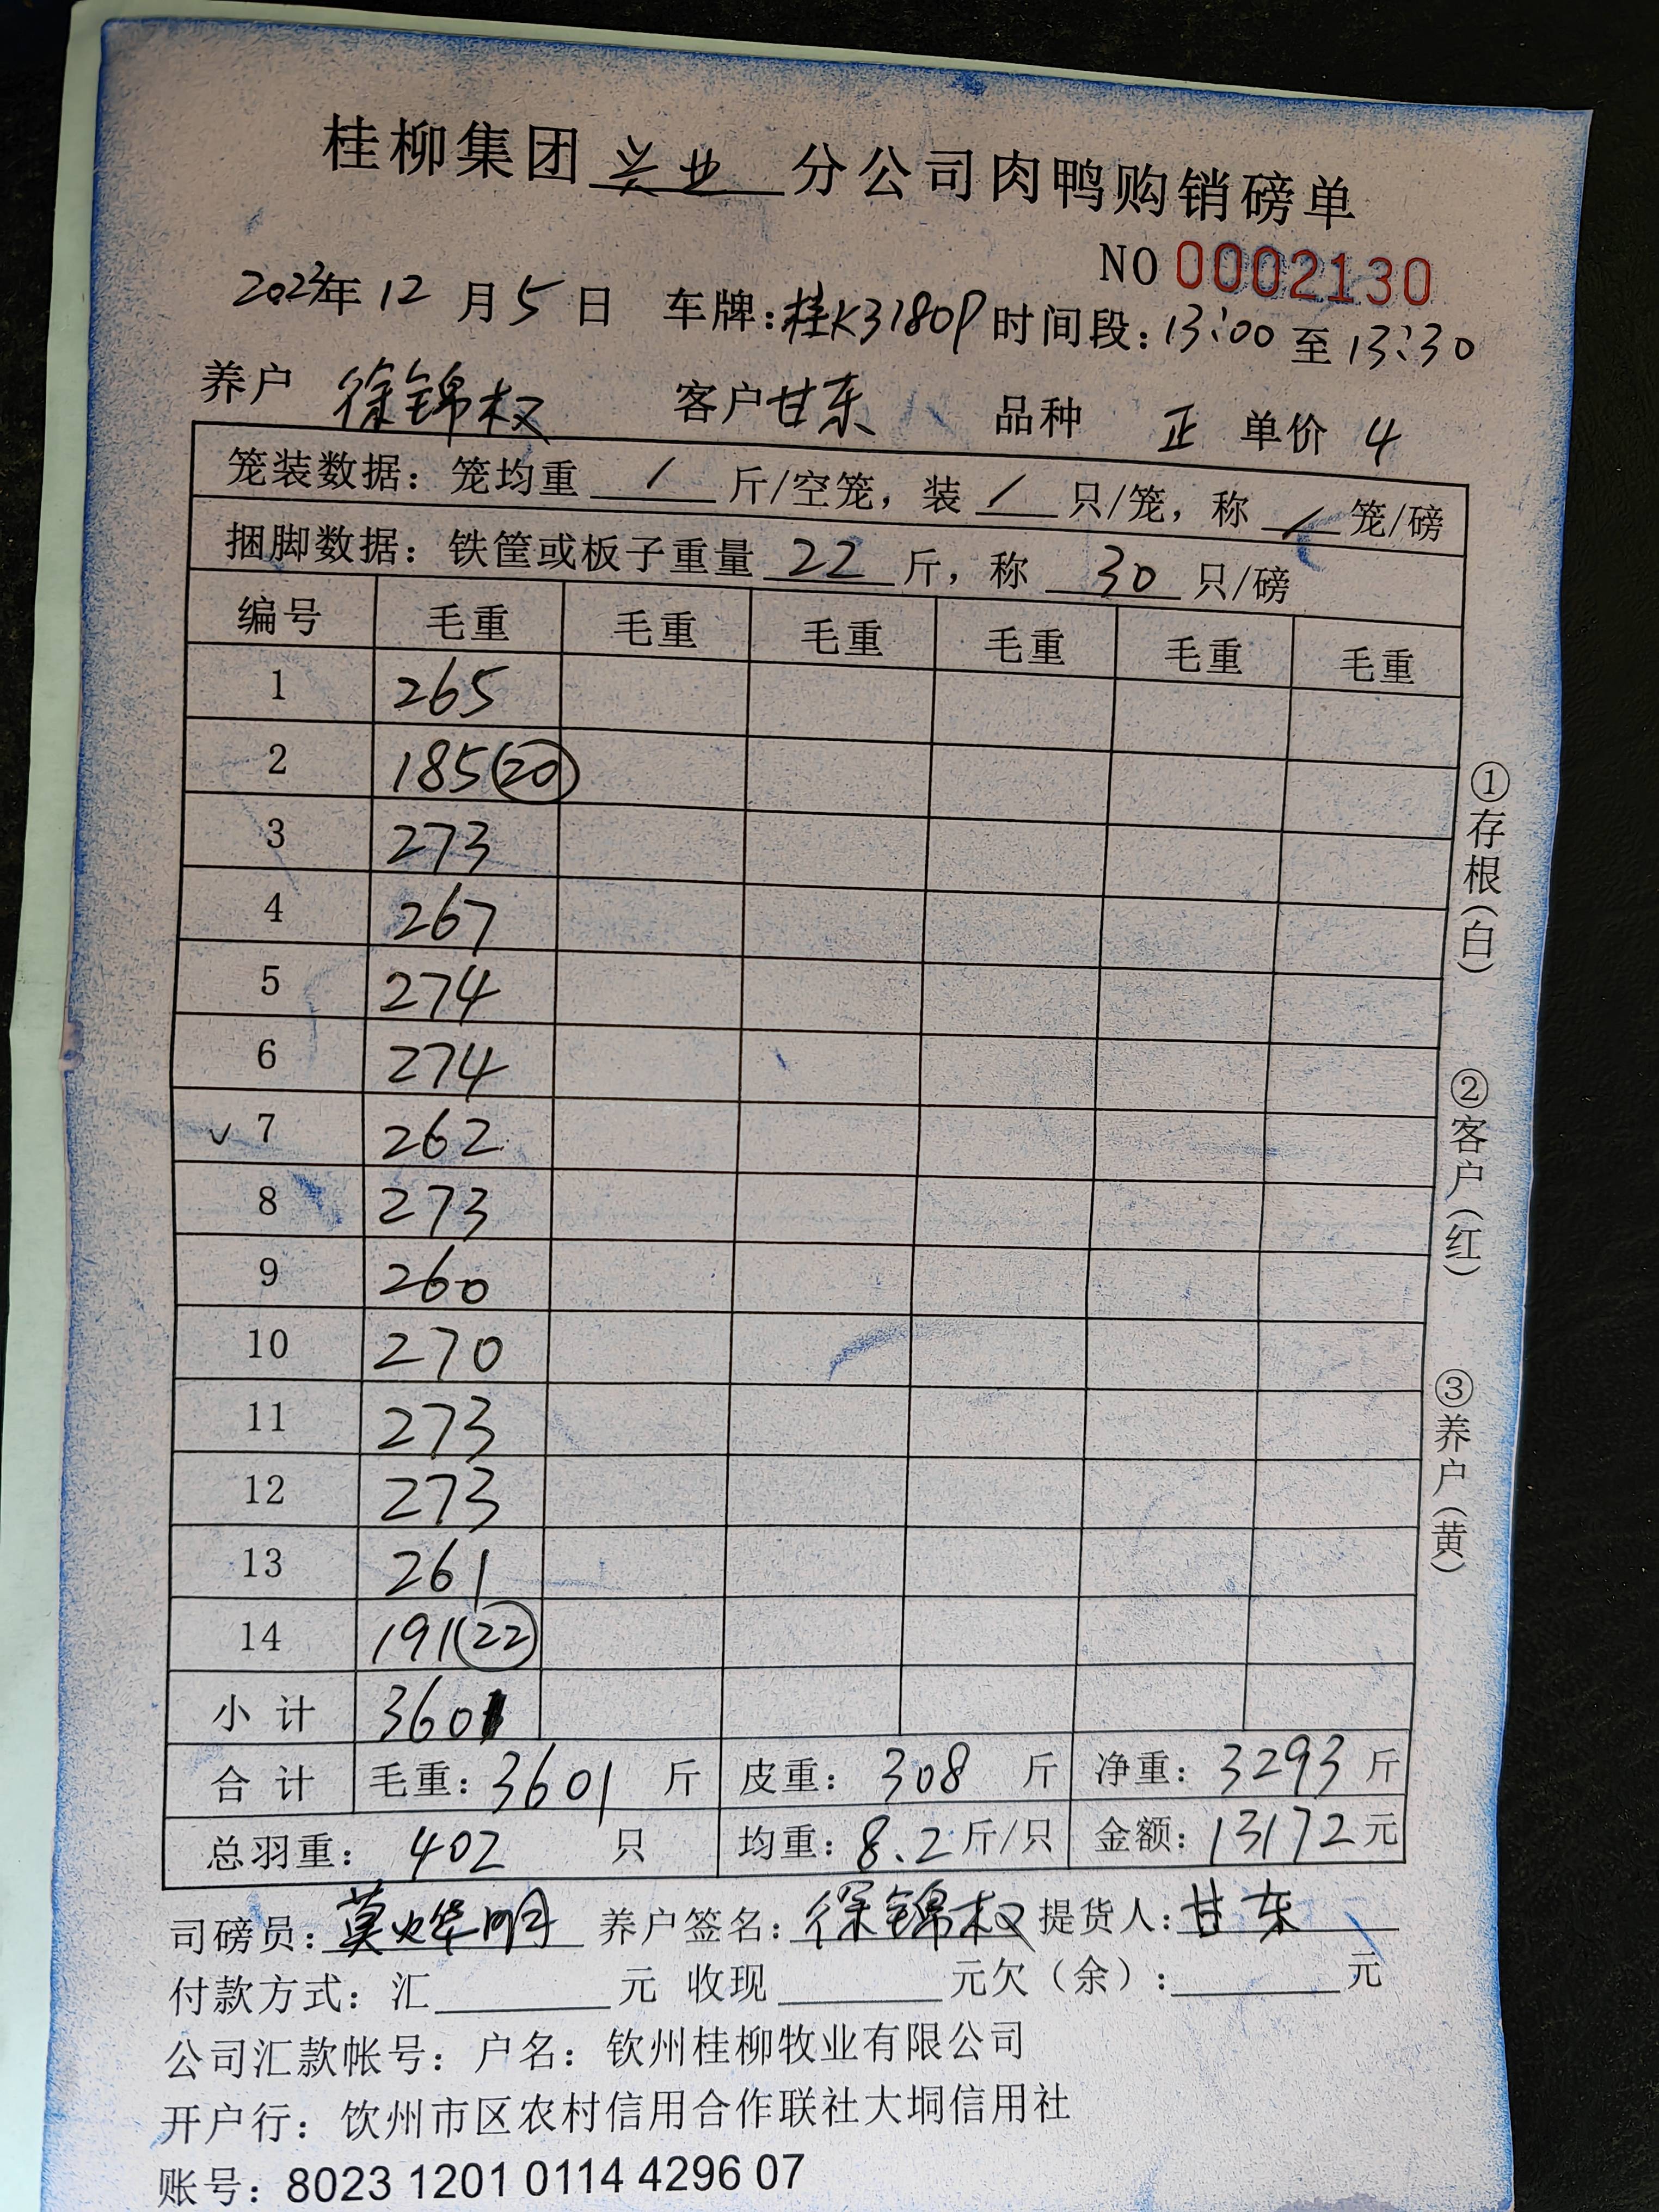 桂柳集团兴业分公司肉鸭购销磅单
NO 0002130
2023年12月5日 车牌:桂K3180P 时间段:13:00至13:30
养户 徐锦权 客户 甘东 品种 正 单价 4
笼装数据：笼均重 / 斤/空笼，装 / 只/笼，称 / 笼/磅
捆脚数据：铁筐或板子重量 22 斤，称 30 只/磅
编号 毛重 毛重 毛重 毛重 毛重 毛重
1 265
2 185(20)
3 273
4 267
5 274
6 274
✓ 7 262
8 273
9 260
10 270
11 273
12 273
13 261
14 191(22)
小计 3601
合计 毛重：3601 斤 皮重：308 斤 净重：3293 斤
总羽重：402 只 均重：8.2 斤/只 金额：13172 元
司磅员：莫烨明 养户签名：徐锦权 提货人：甘东
付款方式：汇 元 收现 元欠（余）： 元
公司汇款帐号：户名：钦州桂柳牧业有限公司
开户行：饮州市区农村信用合作联社大垌信用社
账号：8023 1201 0114 4296 07
①存根（白）
②客户（红）
③养户（黄）